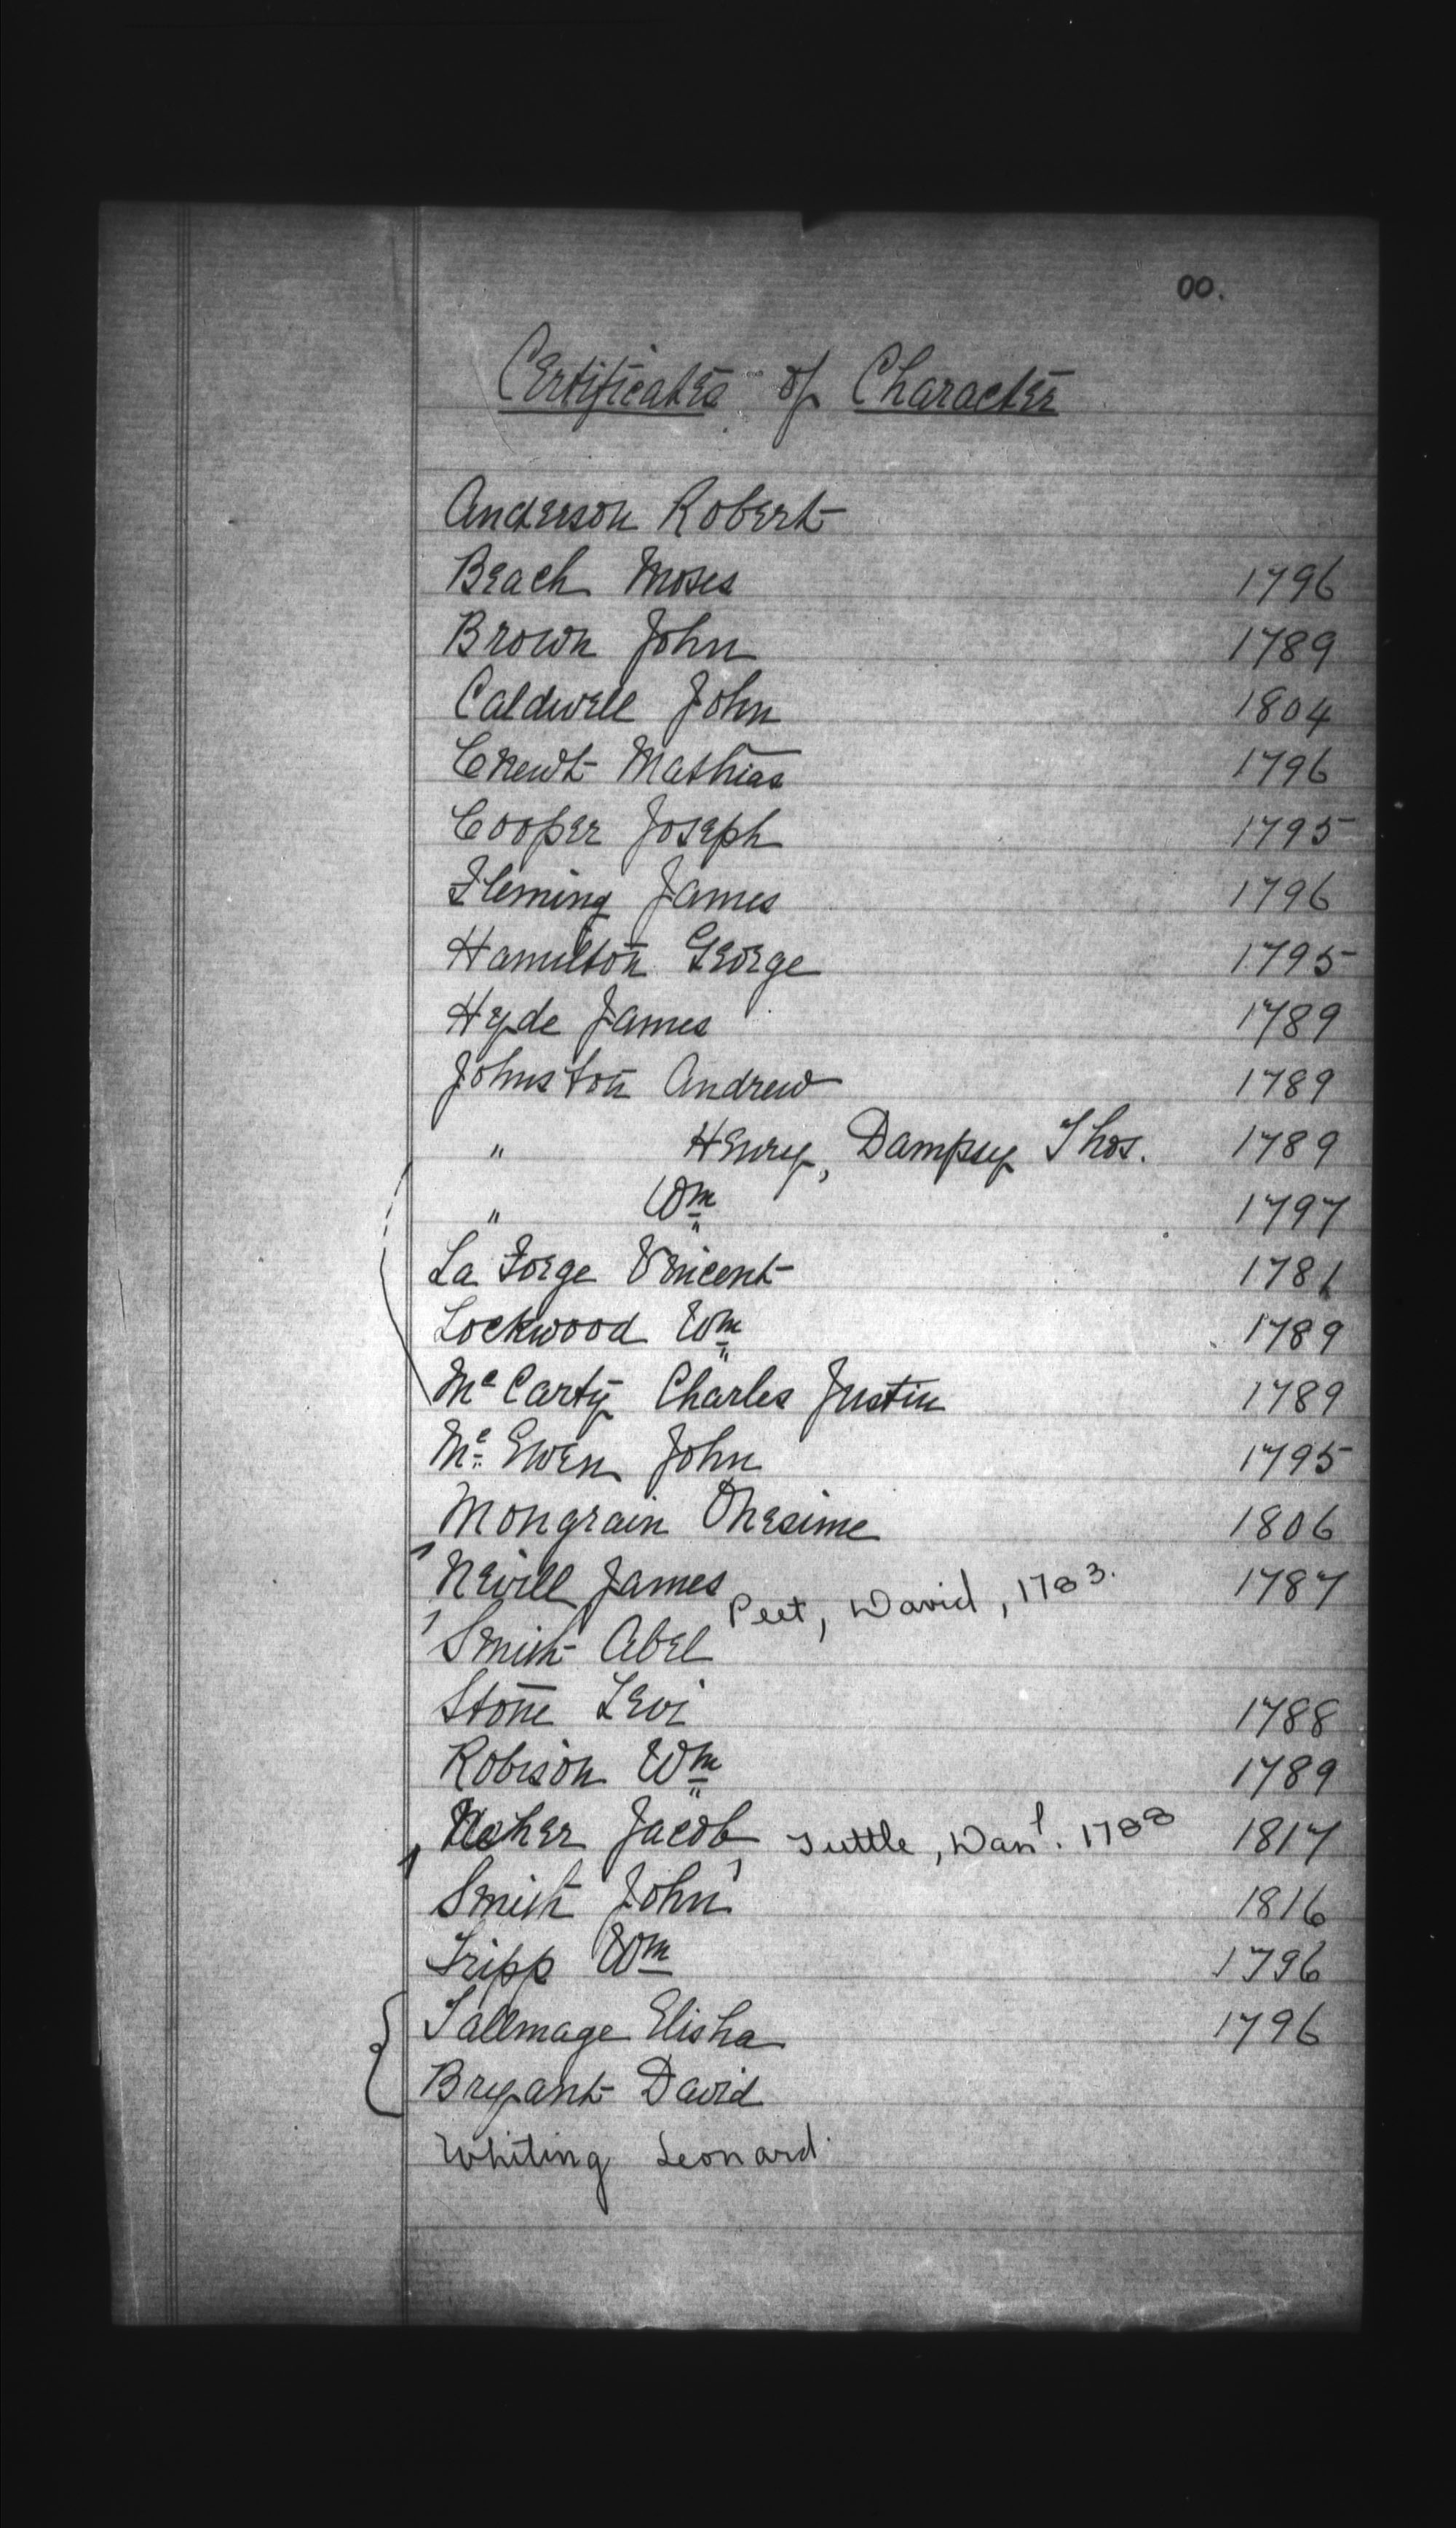 00.
Certificates of Character
Anderson Robert
Beach Moses 1796
Brown John 1789
Caldwell John 1804
Mathias 1796
Cooper Joseph 1795
Fleming James 1796
Hamilton George 1795
Hyde James 1789
Johnston Andrew 1789
" Henry, Dampsey Thos. 1789
" Wm 1797
La Forge Vincent 1781
Lockwood Wm 1789
Mc Carty Charles Justin 1789
Mc Ewen John 1795
Mongrain Onesime 1806
Nevill James 1787
Peet, David, 1783.
Smith Abel
Stone Levi 1788
Robison Wm 1789
Jacob Tuttle, Danl. 1788 1817
Smith John 1816
Tripp Wm 1796
Tallmage Elisha 1796
Bryant David
Whiting Leonard